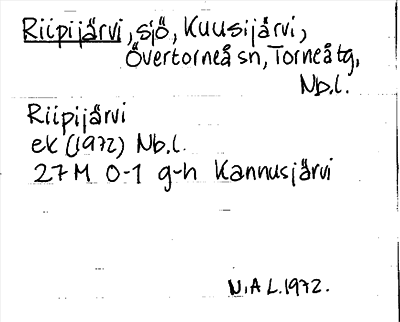 Riipijärvi, sjö, Kuusijärvi,
Övertorneå sn, Torneå tg,
Nb.l.
Riipijärvi
ek (1972) Nb.l.
27M 0-1 g-h Kannusjärvi
N.A L.1972.